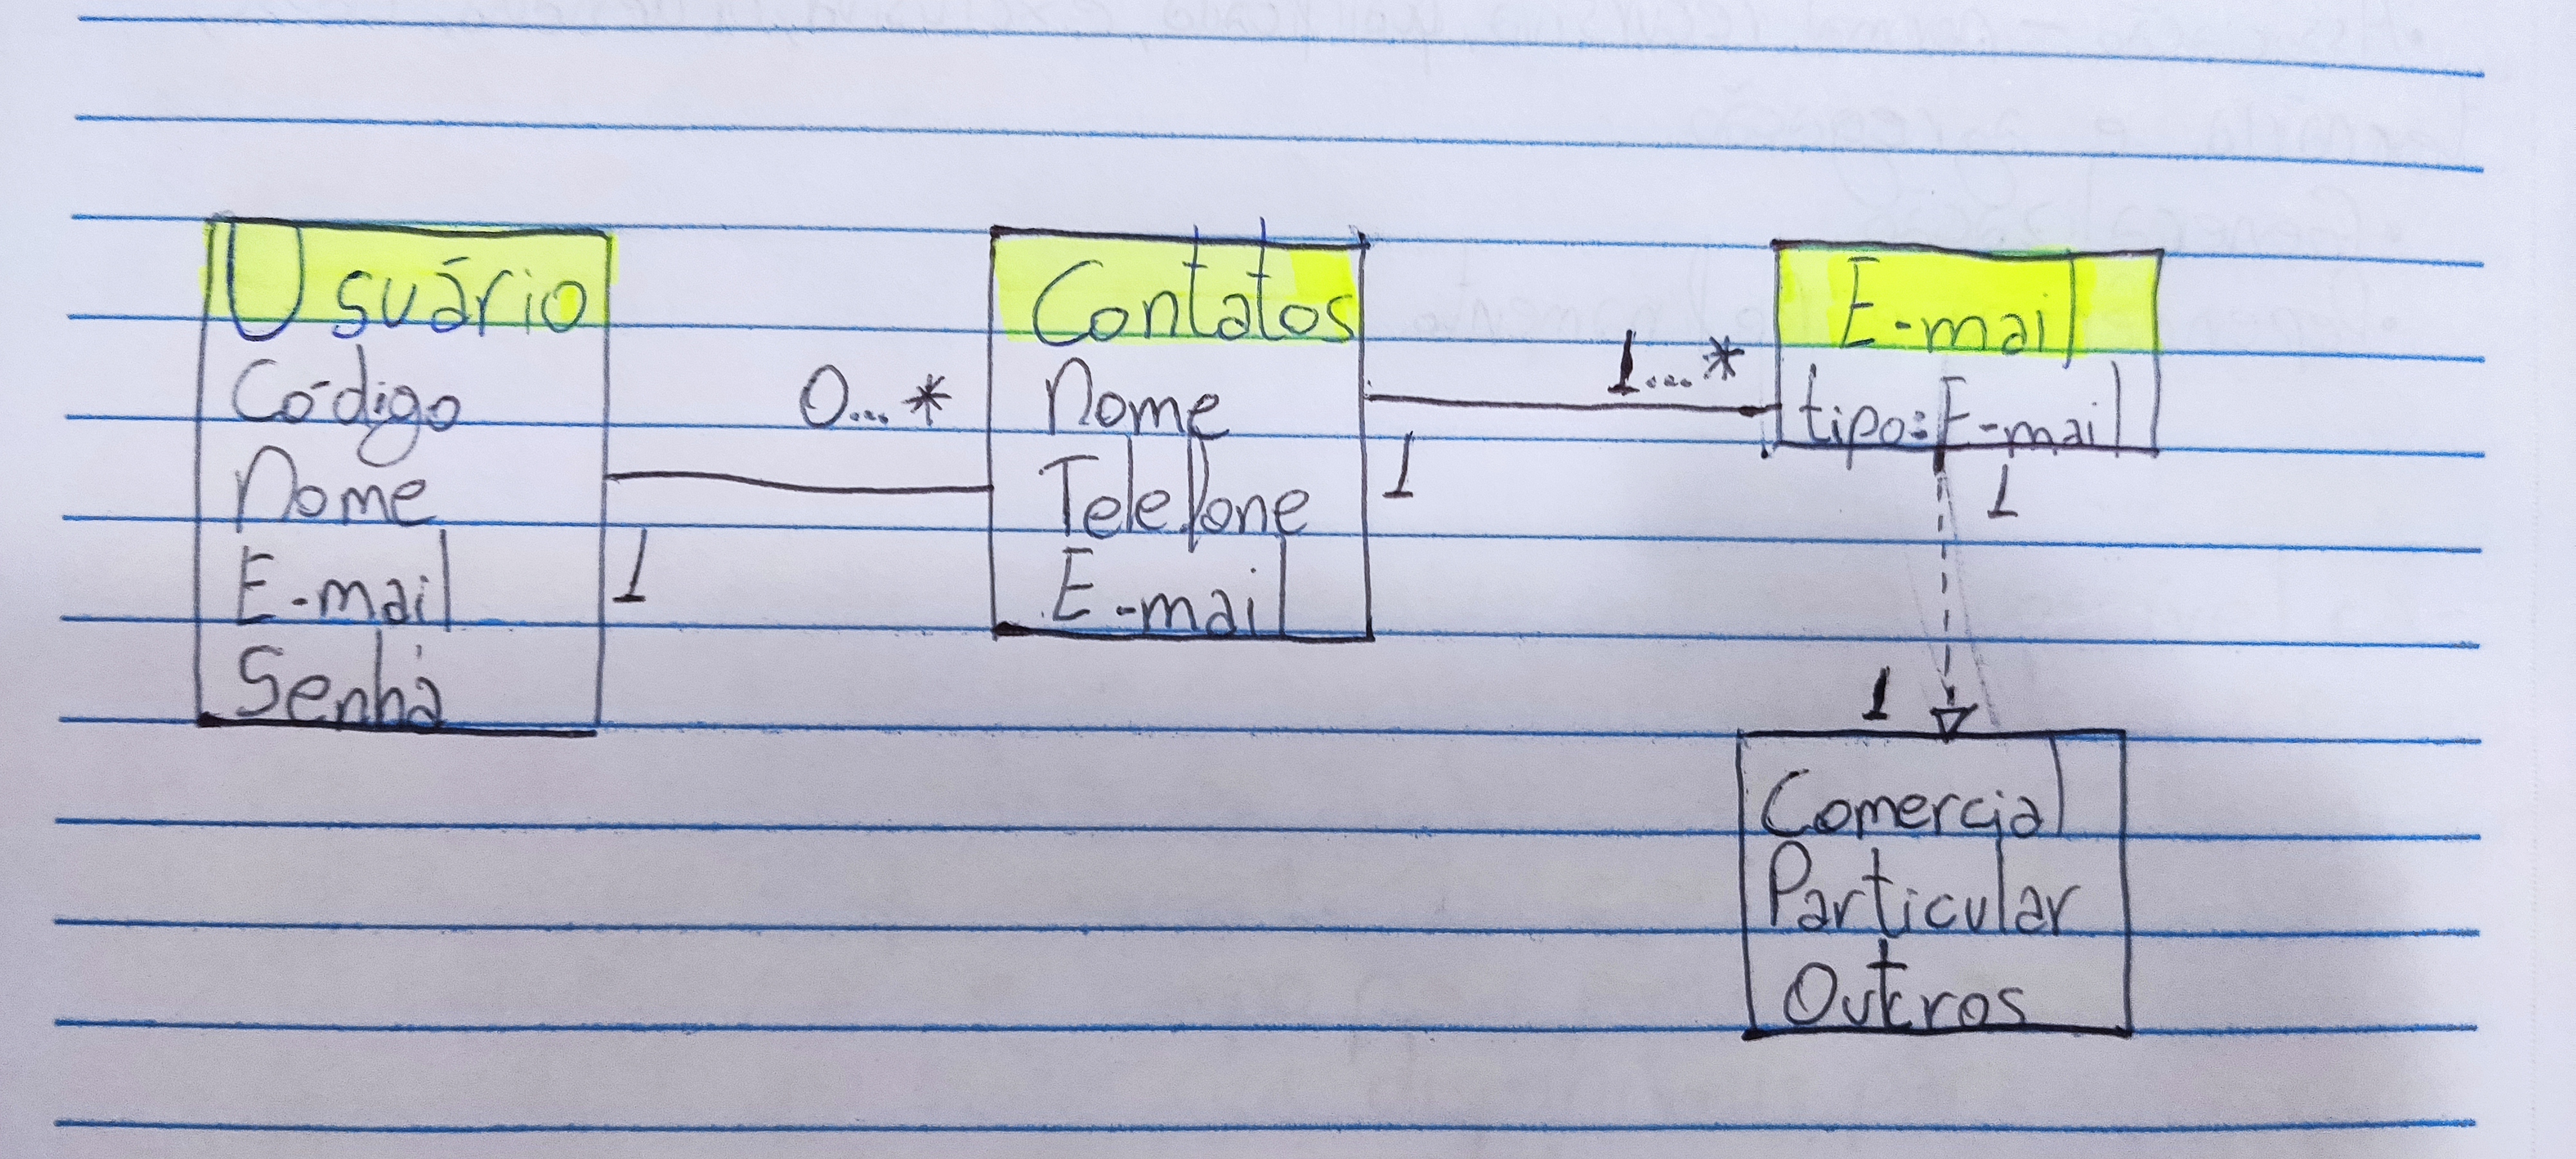 Usuário
Código
Nome
E-mail
Senha
1
0...*
Contatos
Nome
Telefone
E-mail
1
1...*
E-mail
tipo:E-mail
1
1
Comercial
Particular
Outros